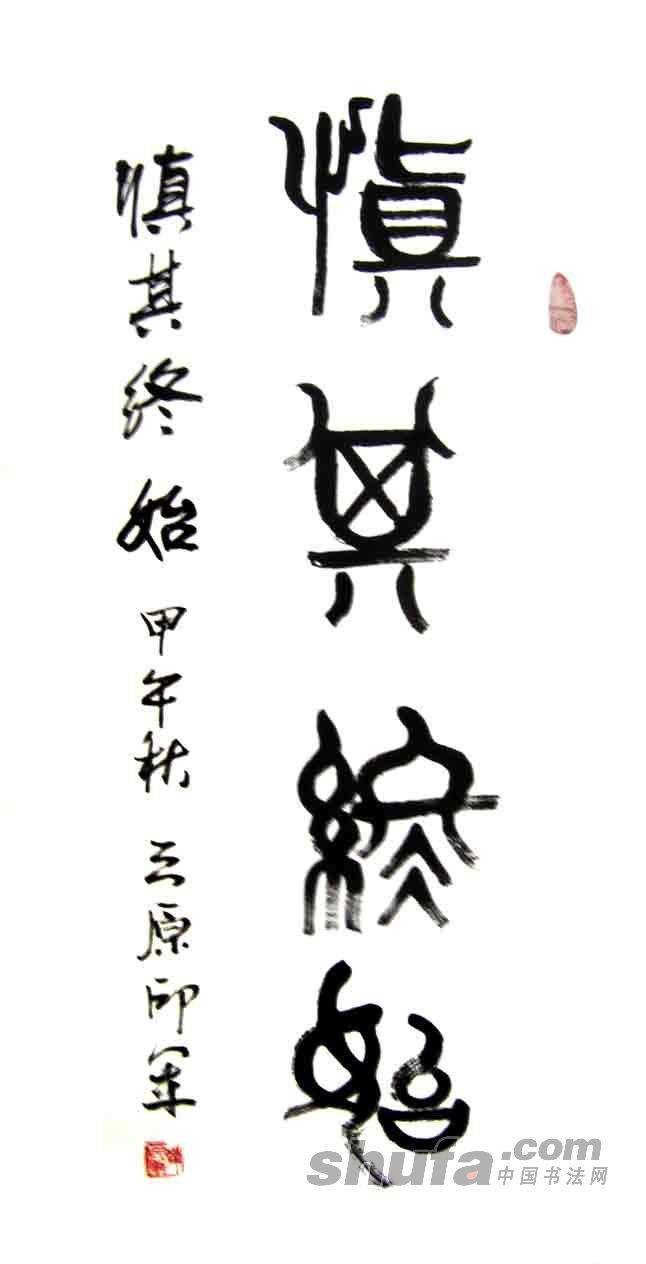 慎其終始
慎其终始 甲午秋 三原印军
shufa.com
中国书法网